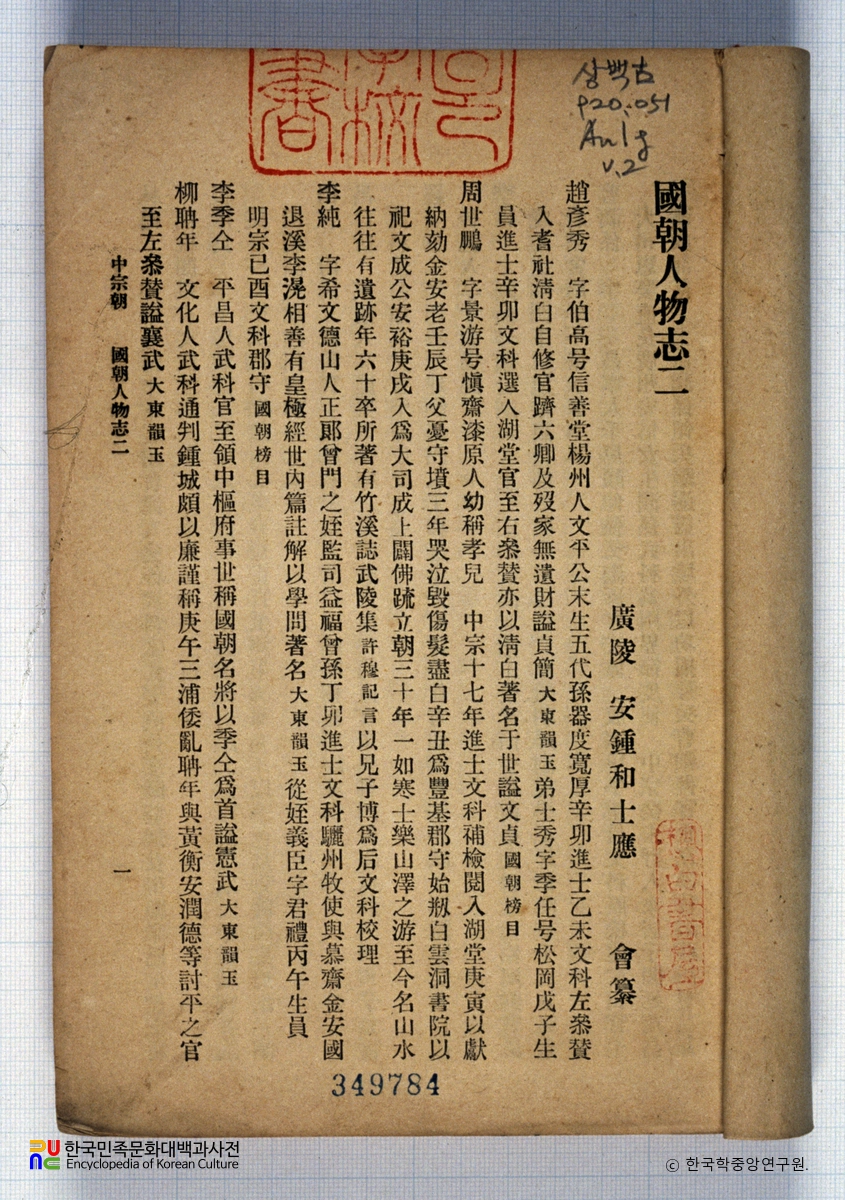 상백古
920.051
An1g
v.2
國朝人物志二
廣陵 安鍾和士應 會纂
趙彦秀 字伯高号信善堂楊州人文平公末生五代孫器度寬厚辛卯進士乙未文科左叅贊
入耆社淸白自修官躋六卿及歿家無遺財謚貞簡大東韻玉弟士秀字季任号松岡戊子生
員進士辛卯文科選入湖堂官至右叅賛亦以淸白著名于世謚文貞國朝榜目
周世鵬 字景游号愼齋漆原人幼稱孝兒 中宗十七年進士文科補檢閱入湖堂庚寅以獻
納劾金安老壬辰丁父憂守墳三年哭泣毀傷髮盡白辛丑爲豐基郡守始刱白雲洞書院以
祀文成公安裕庚戌入爲大司成上闢佛䟽立朝三十年一如寒士樂山澤之游至今名山水
往往有遺跡年六十卒所著有竹溪誌武陵集許穆記言以兄子博爲后文科校理
李純 字希文德山人正郞曾門之姪監司益福曾孫丁卯進士文科驪州牧使與慕齋金安國
退溪李滉相善有皇極經世內篇註解以學問著名大東韻玉從姪義臣字君禮丙午生員
明宗己酉文科郡守國朝榜目
李季仝 平昌人武科官至領中樞府事世稱國朝名將以季仝爲首謚憲武大東韻玉
柳聃年 文化人武科通判鍾城頗以廉謹稱庚午三浦倭亂聃年與黃衡安潤德等討平之官
至左叅賛謚襄武大東韻玉
中宗朝 國朝人物志二 一
349784
한국민족문화대백과사전
Encyclopedia of Korean Culture
ⓒ 한국학중앙연구원.